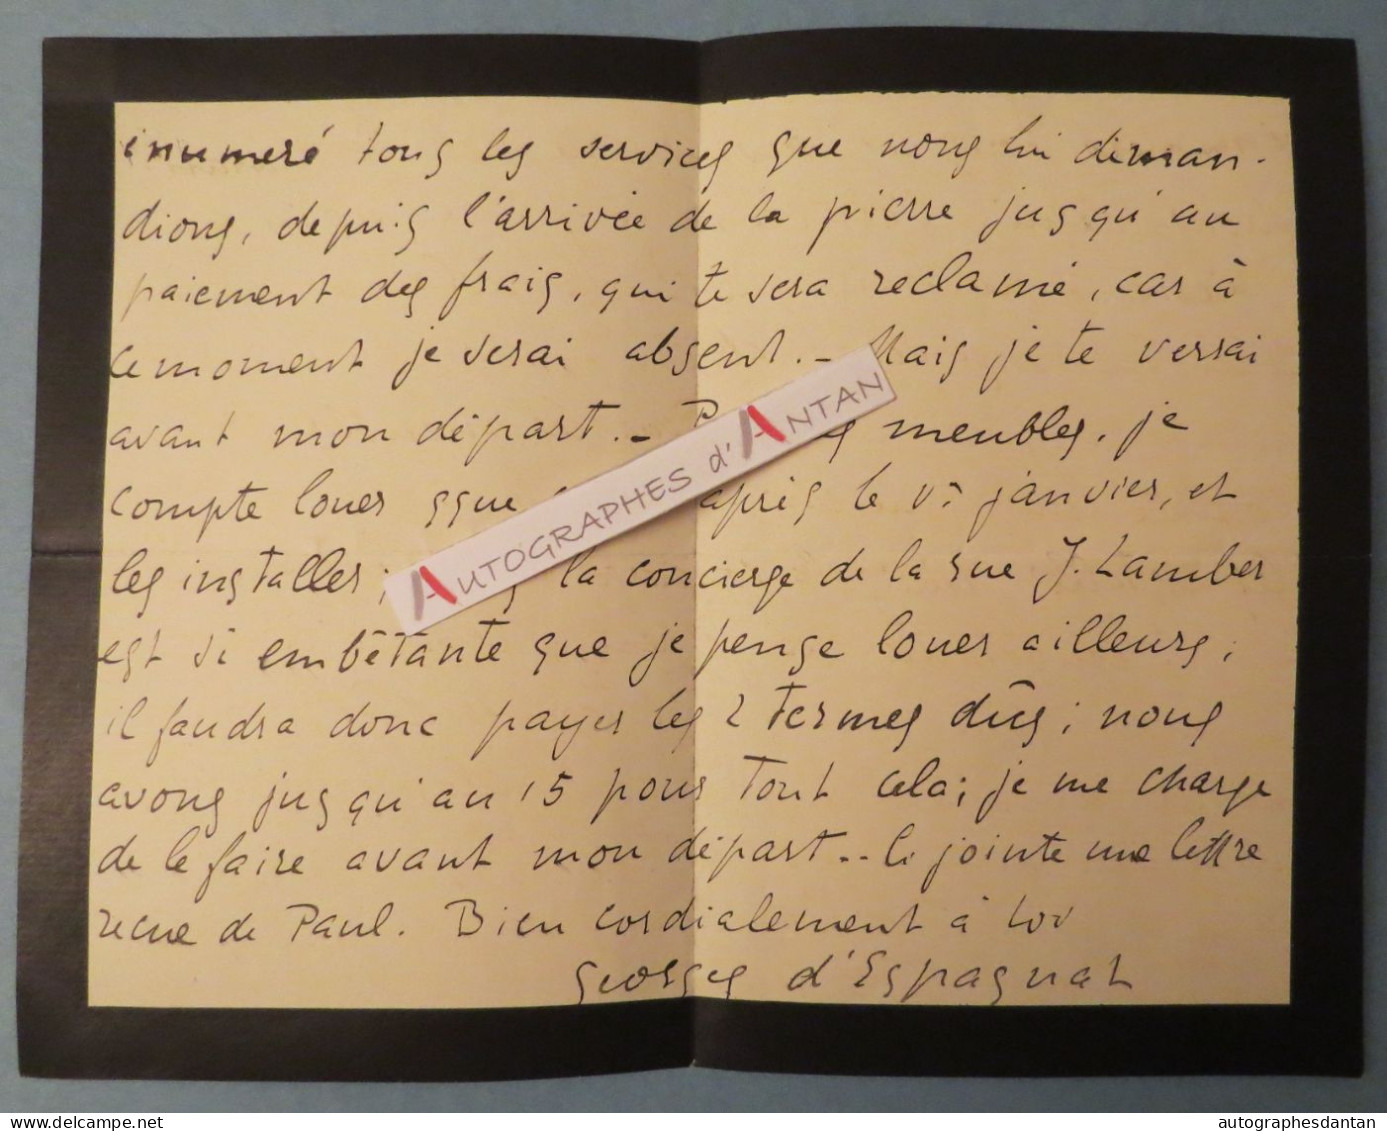 énuméré tous les services que nous lui deman-
dions, depuis l'arrivée de la pierre jusqu'au
paiement des frais, qui te sera reclamé, car à
ce moment je serai absent. - Mais je te verrai
avant mon départ. - meubles, je
compte louer qque après le 1er janvier, et
les installer; la concierge de la rue J. Lamber
est si embêtante que je pense louer ailleurs;
il faudra donc payer les 2 termes dûs; nous
avons jusqu'au 15 pour tout cela; je me charge
de le faire avant mon départ.. Ci jointe une lettre
recue de Paul. Bien cordialement à toi
georges d'Espagnat
AUTOGRAPHES d'ANTAN
autographesdantan